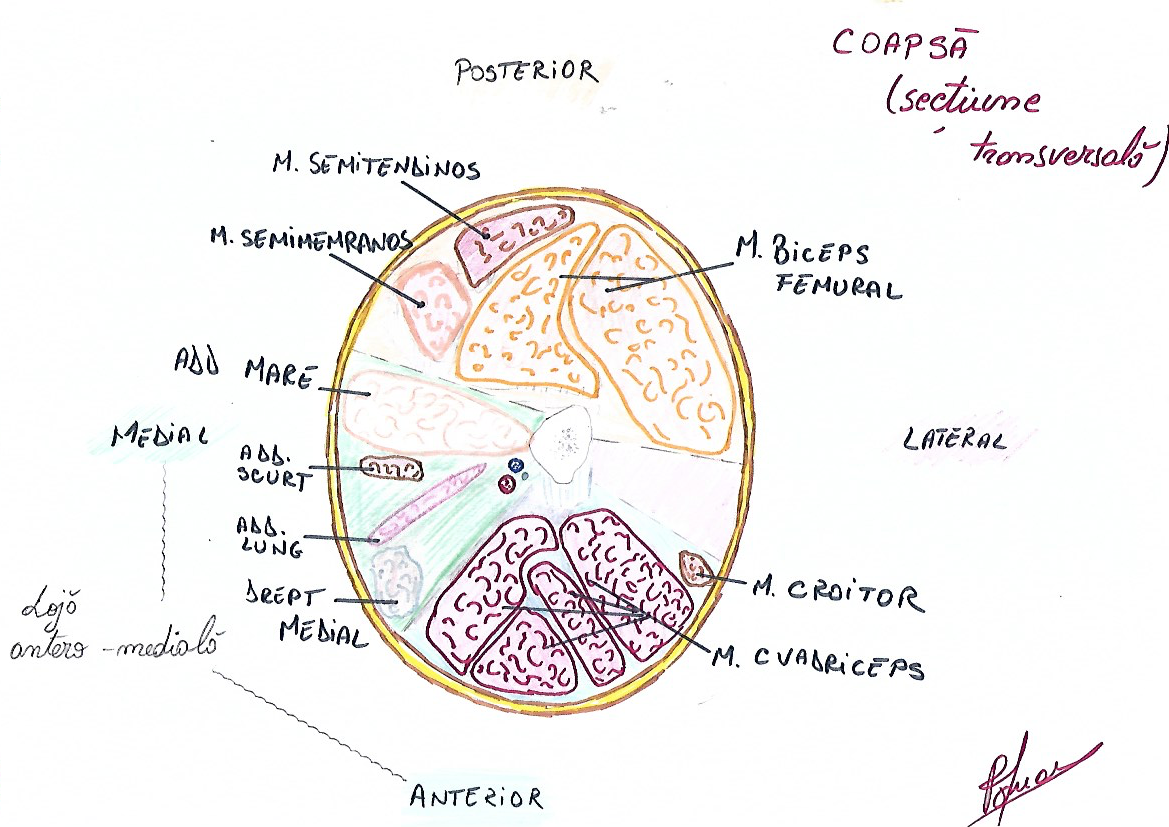 COAPSĂ
(secțiune
transversală)
POSTERIOR
M. SEMITENDINOS
M. SEMIMEMRANOS
M. BICEPS
FEMURAL
ADD MARE
MEDIAL
LATERAL
ADD.
SCURT
ADD.
LUNG
DREPT
MEDIAL
M. CROITOR
M. CVADRICEPS
Lojă
antero-medială
ANTERIOR